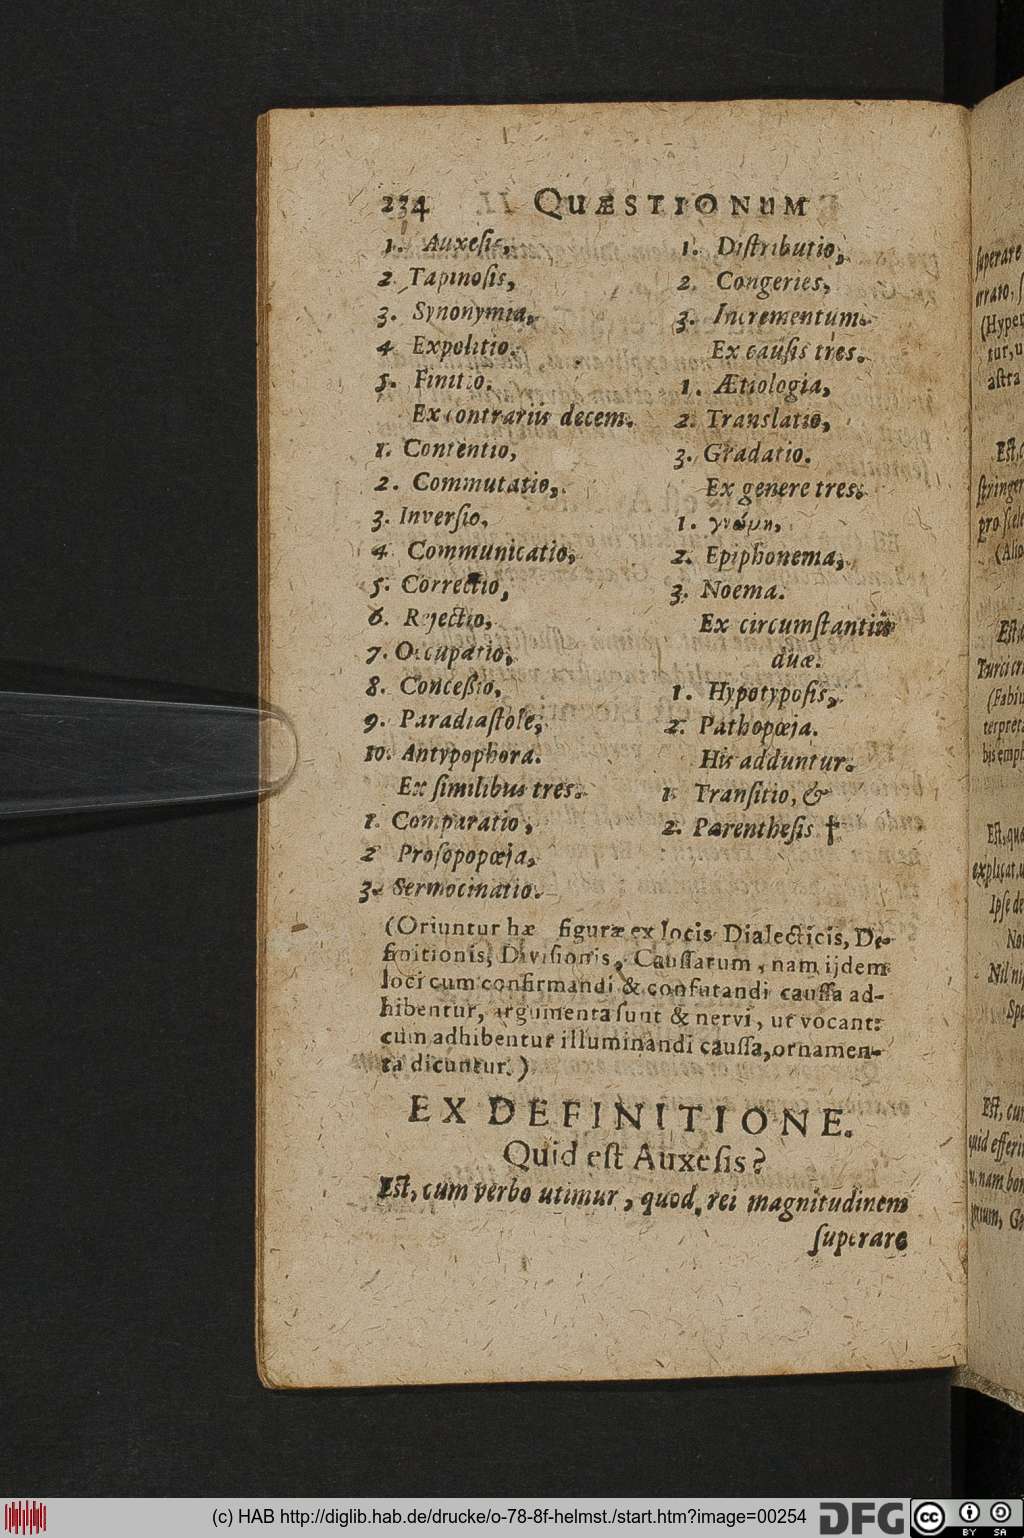 234 QUÆSTIONUM
1. Auxesis,
2. Tapinosis,
3. Synonymia,
4. Expolitio.
5. Finitio.
Ex contrariis decem.
1. Contentio,
2. Commutatio,
3. Inversio,
4. Communicatio,
5. Correctio,
6. Rejectio,
7. Occupatio,
8. Conceßio,
9. Paradiastole,
10. Antypophora.
Ex similibus tres.
1. Comparatio,
2 Prosopopœja,
3. Sermocinatio.
1. Distributio,
2. Congeries,
3. Incrementum.
Ex causis tres.
1. Ætiologia,
2. Translatio,
3. Gradatio.
Ex genere tres.
1. γνώμη,
2. Epiphonema,
3. Noema.
Ex circumstantiis
duæ.
1. Hypotyposis,
2. Pathopœja.
His adduntur.
1. Transitio, &
2. Parenthesis †
(Oriuntur hæ figuræ ex locis Dialecticis, De-
finitionis, Divisionis, Caussarum, nam ijdem
loci cum confirmandi & confutandi caussa ad-
hibentur, argumenta sunt & nervi, ut vocant:
cum adhibentur illuminandi caussa, ornamen-
ta dicuntur.)
EX DEFINITIONE.
Quid est Auxesis?
Est, cum verbo utimur, quod, rei magnitudinem
superare
(c) HAB http://diglib.hab.de/drucke/o-78-8f-helmst./start.htm?image=00254
DFG
cc
BY SA